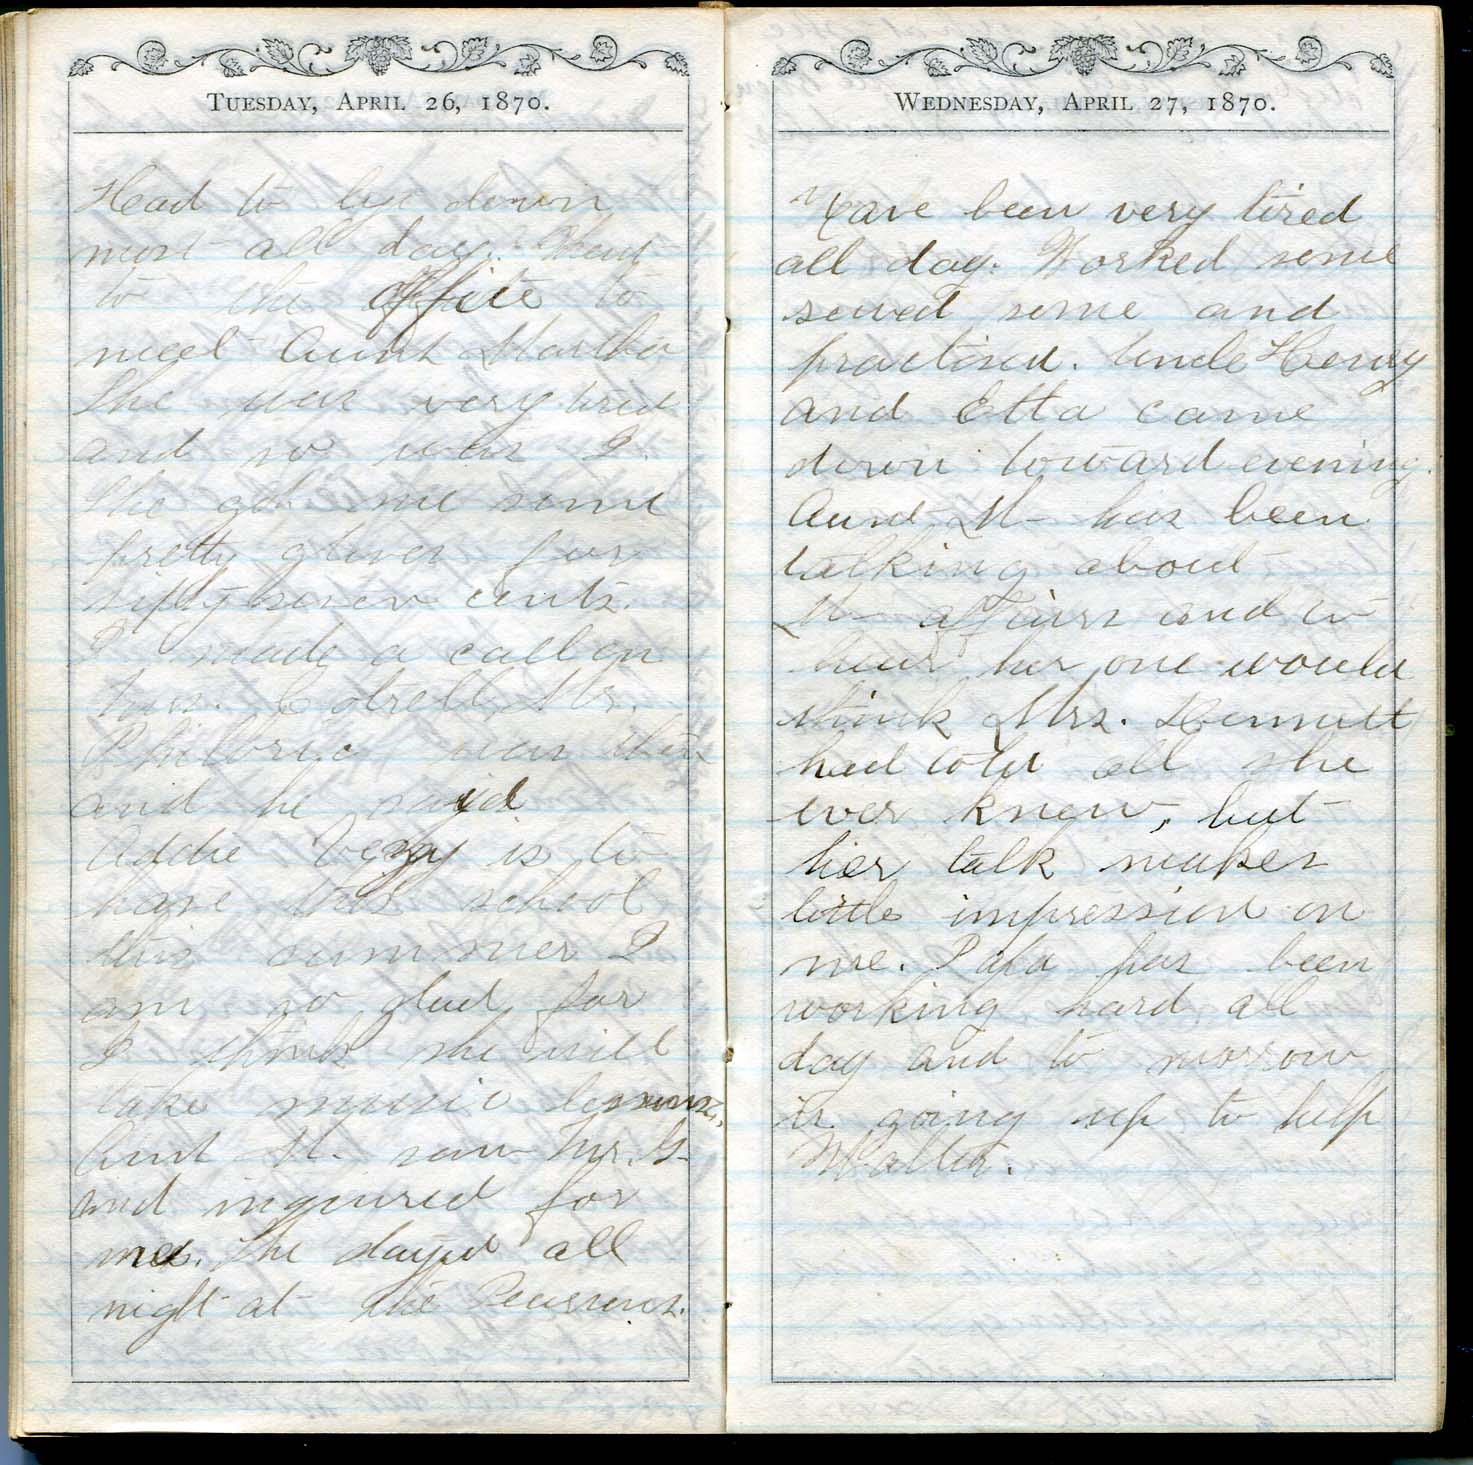 TUESDAY, APRIL 26, 1870.
Head to lye down
most all day. Went
to the office to
meet Aunt Martha
She was very tired
and so was I.
She got me some
pretty gloves for
fifty seven cents.
I made a call on
Cotrell Mr.
Philbric was
and he said
Addie is to
have this school
this summer I
am so glad for
I think she will
take music lessons.
Aunt M. saw Mr. G-
and inquired for
me. She stayed all
night at the Pearsons.
WEDNESDAY, APRIL 27, 1870.
Have been very tired
all day. Worked some
sewed some and
practised. Uncle Henry
and Etta came
down toward evening.
Aunt M- has been
talking about
M- affairs and to
hear her one would
think Mrs.
had told all she
ever knew, but
her talk makes
little impression on
me. Papa has been
working hard all
day and to morrow
is going up to help
Walter.